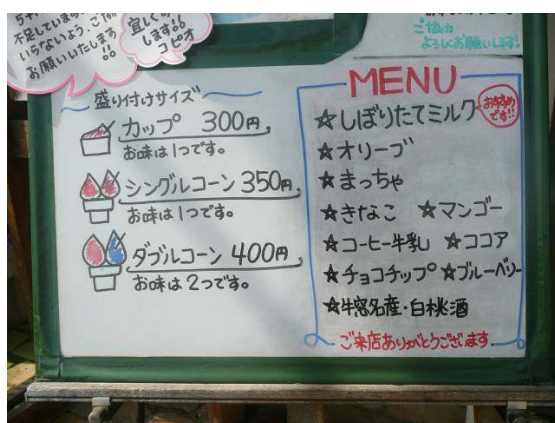 不足していま
いらないよう、ご協
お願いいたします!!
宜しく
します!!
コピオ
ご協力
よろしくお願いします!
盛り付けサイズ
カップ 300円
お味は1つです。
シングルコーン 350円
お味は1つです。
ダブルコーン 400円
お味は2つです。
MENU
☆しぼりたてミルク おすすめです!!
☆オリーブ
☆まっちゃ
☆きなこ ☆マンゴー
☆コーヒー牛乳 ☆ココア
☆チョコチップ ☆ブルーベリー
☆牛窓名産・白桃酒
ご来店ありがとうございます